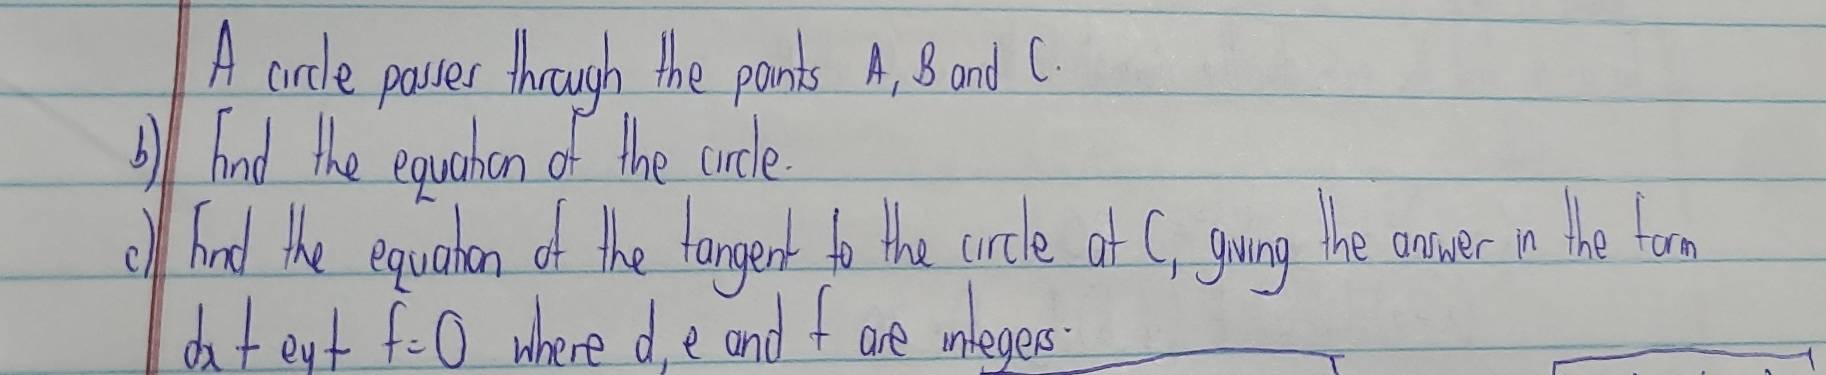 A circle passes through the points A, B and C.
b) Find the equation of the circle.
c) Find the equation of the tangent to the circle at C, giving the answer in the form
dx + ey + f = 0 where d, e and f are integers.